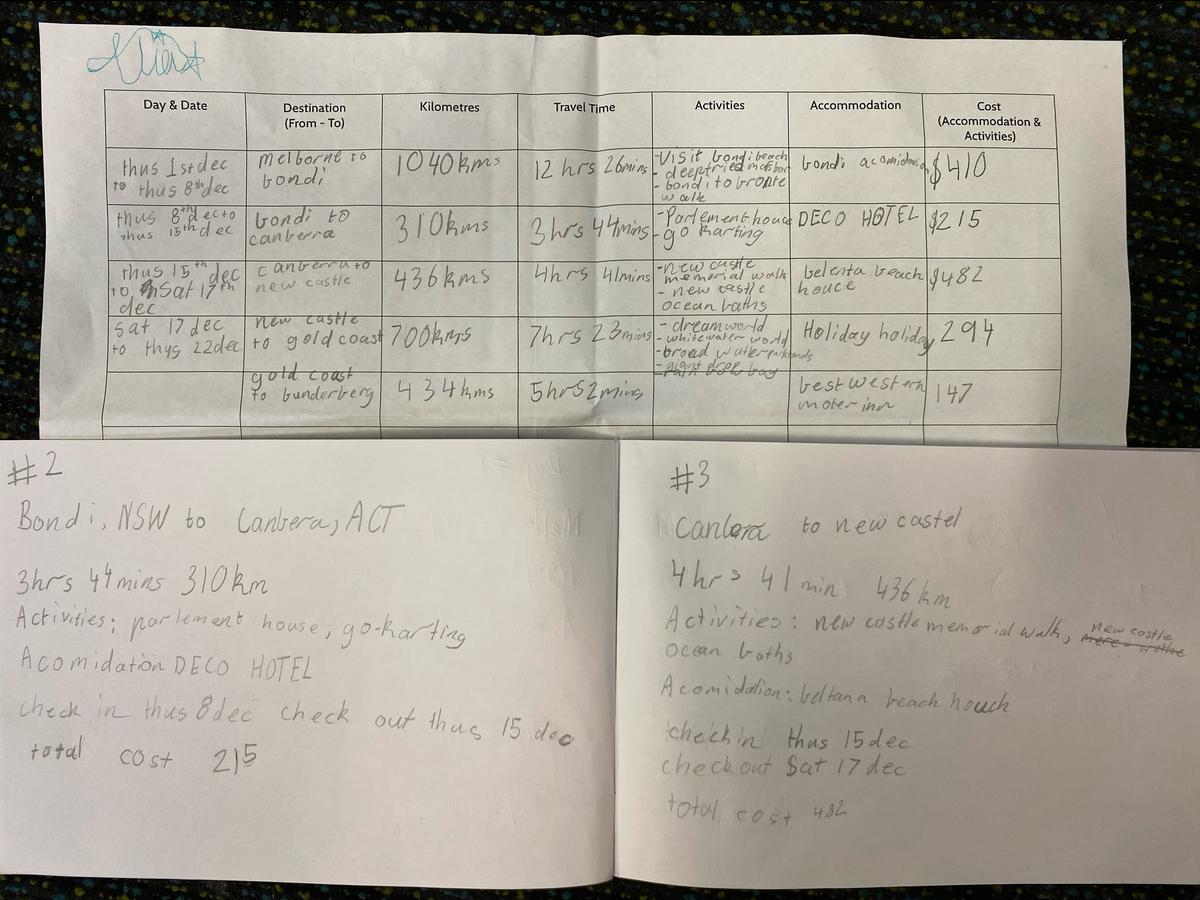 Day & Date
Destination
(From - To)
Kilometres
Travel Time
Activities
Accommodation
Cost
(Accommodation &
Activities)
thus 1st dec
to thus 8th dec
melborne to
bondi
1040kms
12 hrs 26mins
-Visit bondi beach
- deepfried
- bondi to bronte
walk
bondi
$410
thus 8th dec to
thus 15th dec
bondi to
canberra
310kms
3hrs 44mins
-Parlement houce
-go karting
DECO HOTEL
$215
thus 15th dec
to Sat 17th
dec
canberra to
new castle
436kms
4hrs 41mins
-new castle
memorial walk
- new castle
ocean baths
belenta beach
houce
$482
Sat 17 dec
to thys 22dec
new castle
to gold coast
700kms
7hrs 23mins
- dreamworld
- whitewater world
-broad water
Holiday holiday
294
gold coast
to bunderberg
434kms
5hrs2mins
best western
moter inn
147
#2
Bondi, NSW to Canbera, ACT
3hrs 44mins 310km
Activities: parlement house, go-karting
Acomidation DECO HOTEL
check in thus 8dec check out thus 15 dec
total cost 215
#3
Canbera to new castel
4hrs 41min 436km
Activities: new castle memorial walk, new castle
ocean baths
Acomidation: beltana beach houch
checkin thus 15dec
checkout Sat 17dec
total cost 482